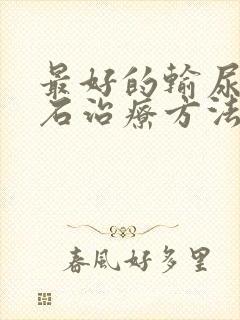 最好的输尿
石治疗方法
春風好多里